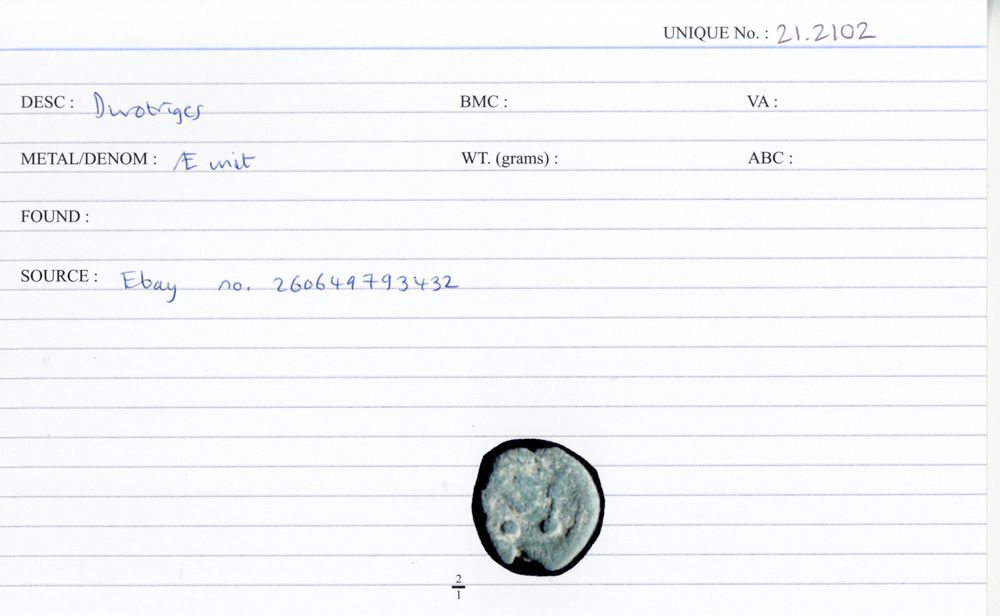 UNIQUE No. : 21.2102
DESC : Durotriges BMC : VA :
METAL/DENOM : Æ unit WT. (grams) : ABC :
FOUND :
SOURCE : Ebay no. 260649793432
2
1